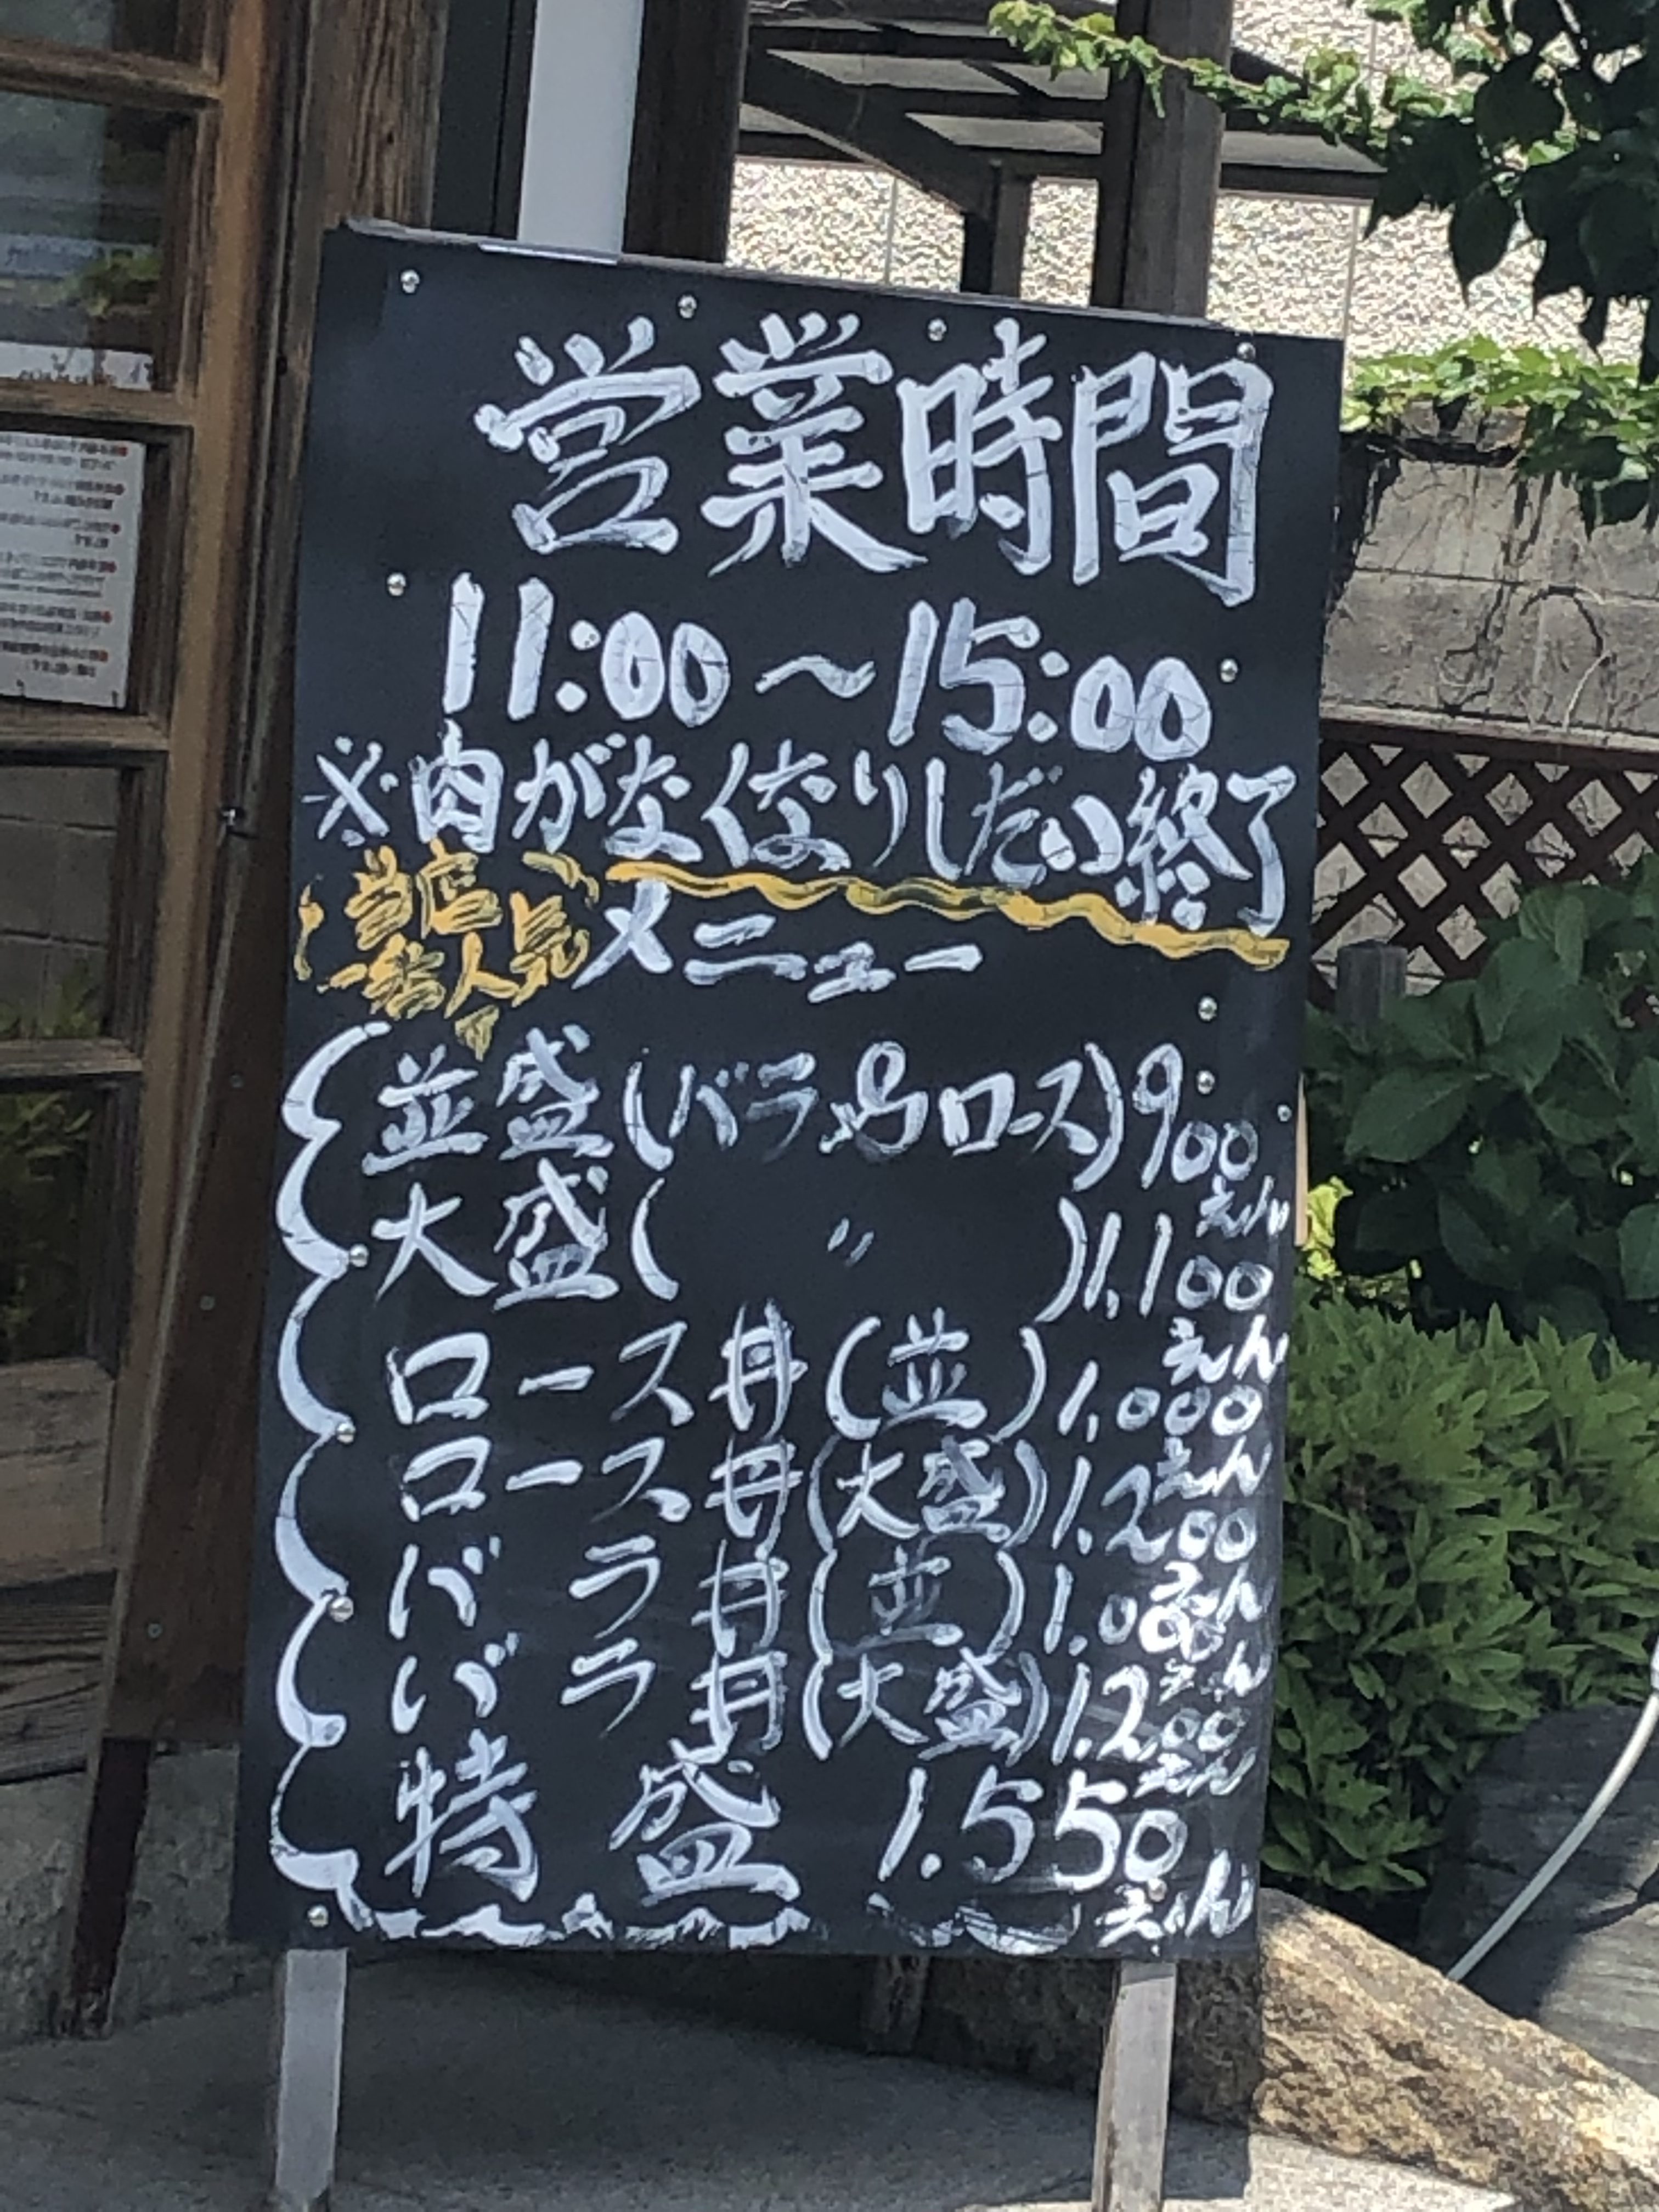 営業時間
11:00～15:00
※肉がなくなりしだい終了
当店
一番人気
メニュー
並盛(バラ&ロース)900えん
大盛( 〃 )1,100えん
ロース丼(並)1,000えん
ロース丼(大盛)1.200えん
バラ丼(並)1.000えん
バラ丼(大盛)1.200えん
特盛 1.550えん